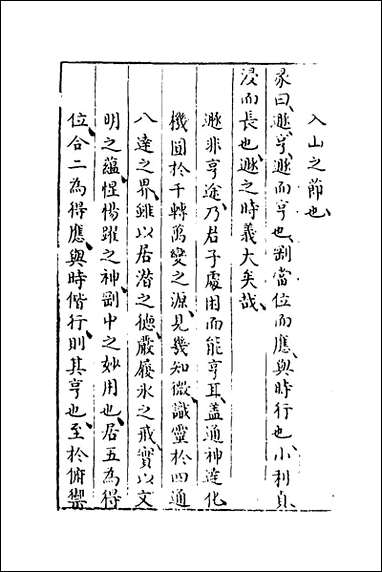 入山之節也
彖曰遯亨遯而亨也剛當位而應與時行也小利貞
浸而長也遯之時義大矣哉
遯非亨途乃君子處困而能亨耳蓋通神達化
機圓於千轉萬變之源見幾知微識靈於四通
八達之界雖以居潛之德嚴履氷之戒實以文
明之蘊惺惕躍之神剛中之妙用也居五為得
位合二為得應與時偕行則其亨也至於俯禦